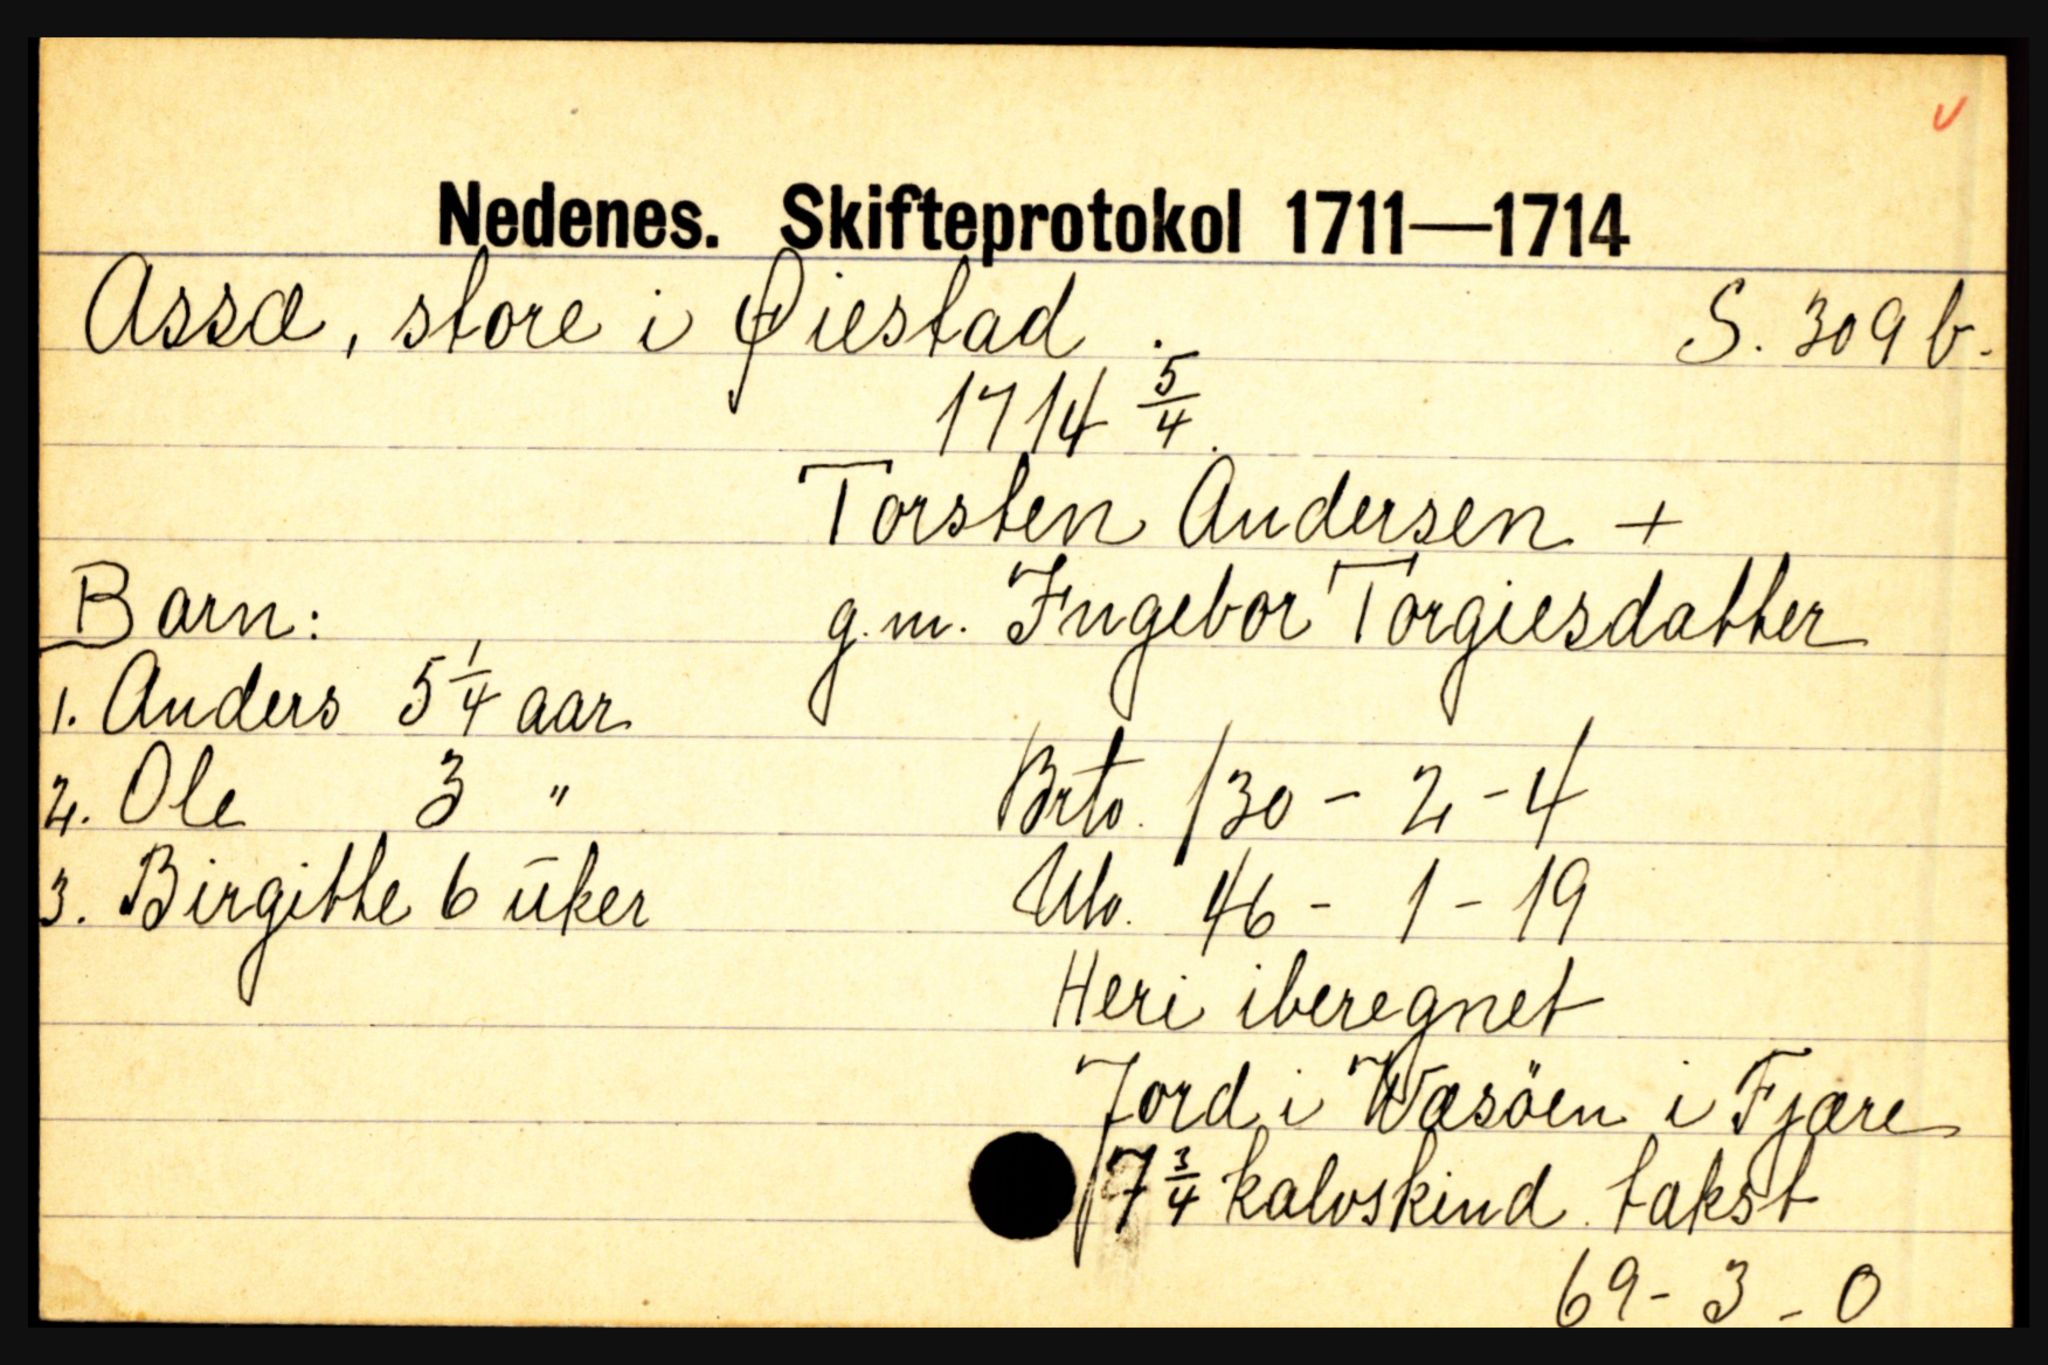 Nedenes. Skifteprotokol 1711—1714
Assæ, store i Øiestad. S. 309 b.
1714 5/4.
Torsten Andersen +
g.m. Ingebor Torgiesdatter
Barn:
1. Anders 5 1/4 aar
2. Ole 3 "
3. Birgitte 6 ūker
Brto. 130 - 2 - 4
Nto. 46 - 1 - 19
Heri iberegnet
Jord i Wæsöen i Fjære
7 3/4 kalvskind. takst
69 - 3 - 0